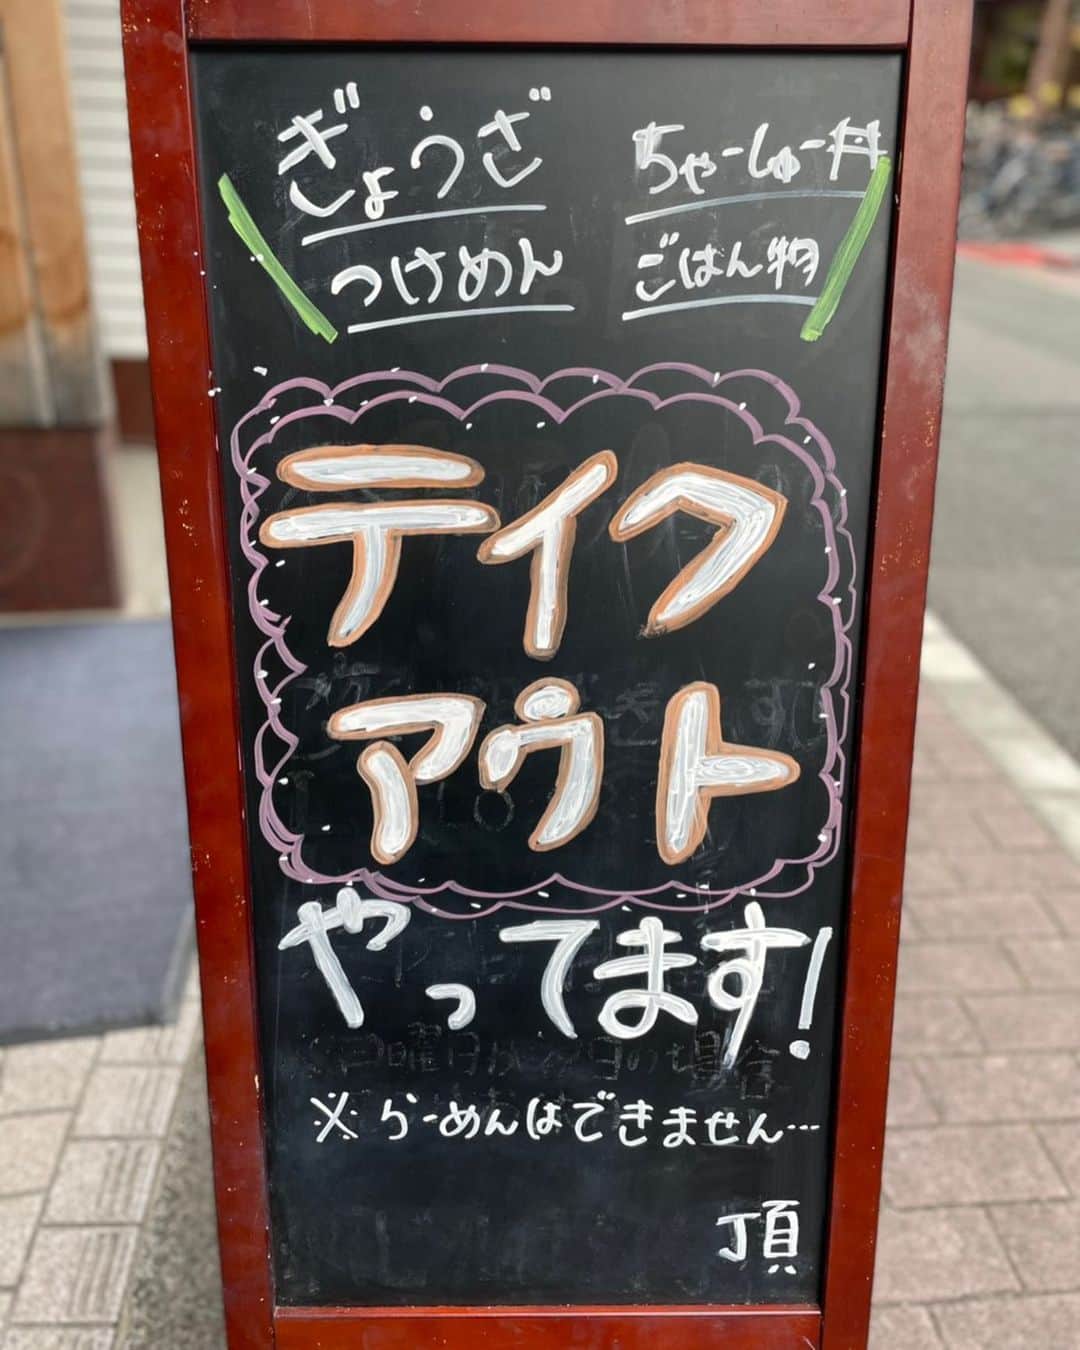 ぎょうざ ちゃーしゅー丼
つけめん ごはん物
テイク
アウト
やってます!
※らーめんはできません…
頂